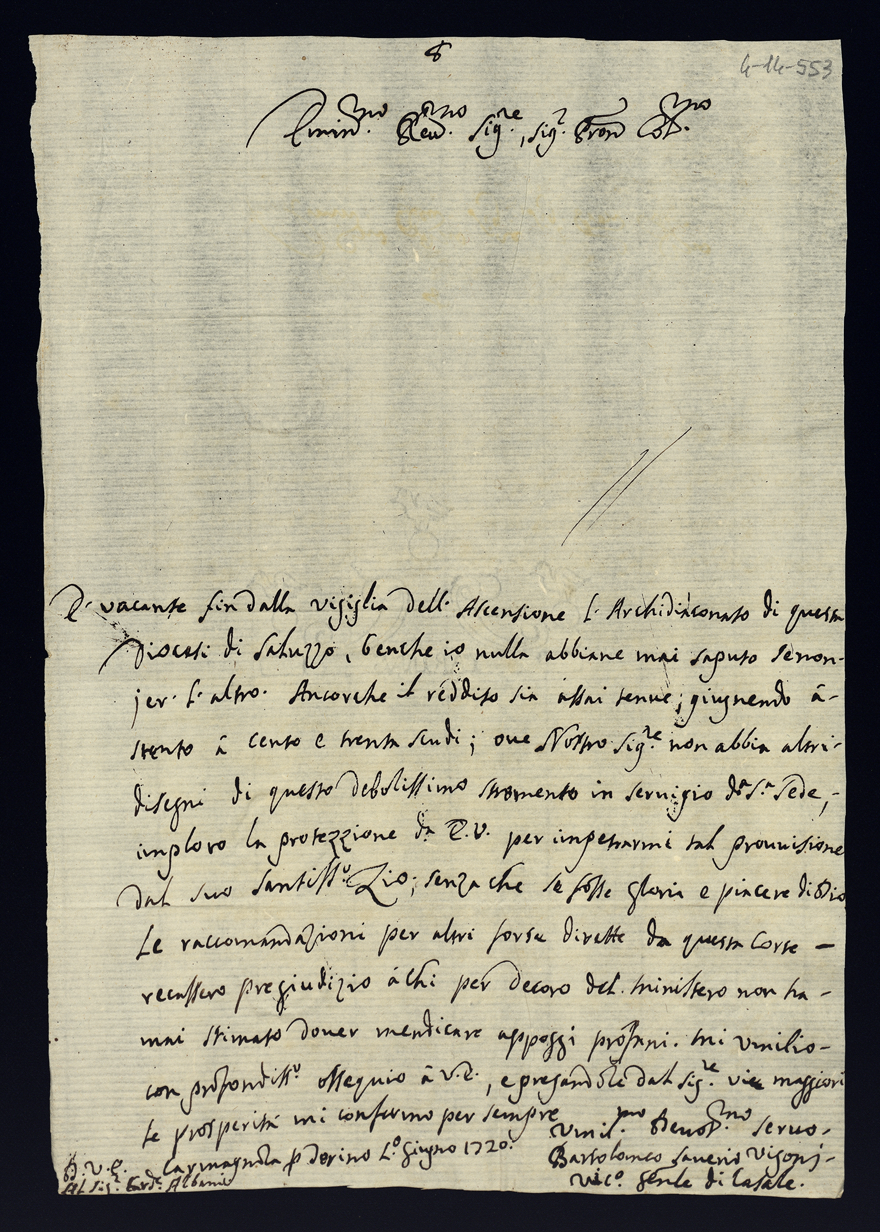 8
4-14-553
Emin.mo Rev.mo Sig.re, Sig.r Pron Col.mo
E' vacante sin dalla vigiglia dell' Ascensione l' Archidiaconato di questa
Diocesi di Saluzzo, benche io nulla abbiane mai saputo senon-
jer l' altro. Ancorche il reddito sia assai tenue, giugnendo à-
stento à cento e trenta scudi; oue Nostro Sig.re non abbia altri-
disegni di questo debolissimo stromento in seruigio d.a S.a Sede,-
imploro la protezzione da E.V. per impetrarmi tal prouuisione
dal suo Santiss.o Zio; senza che se fosse gloria e piacere di Dio,
le raccomandazioni per altri forse dirette da questa Corte -
recassero pregiudizio à chi per decoro del ministero non ha-
mai stimato douer mendicare appoggi profani. Mi vmilio-
con profondiss.o ossequio à V.E., e pregandole dal Sig.re vie maggiori
le prosperità mi confermo per sempre
D. V. E. Carmagnola p Torino L.o Giugno 1720.
Al Sig.r Card.e Albani
Vmil.mo Deuot.mo Seruo-
Bartolomeo Sauerio Vigonj-
Vic.o Gen.le di Casale.